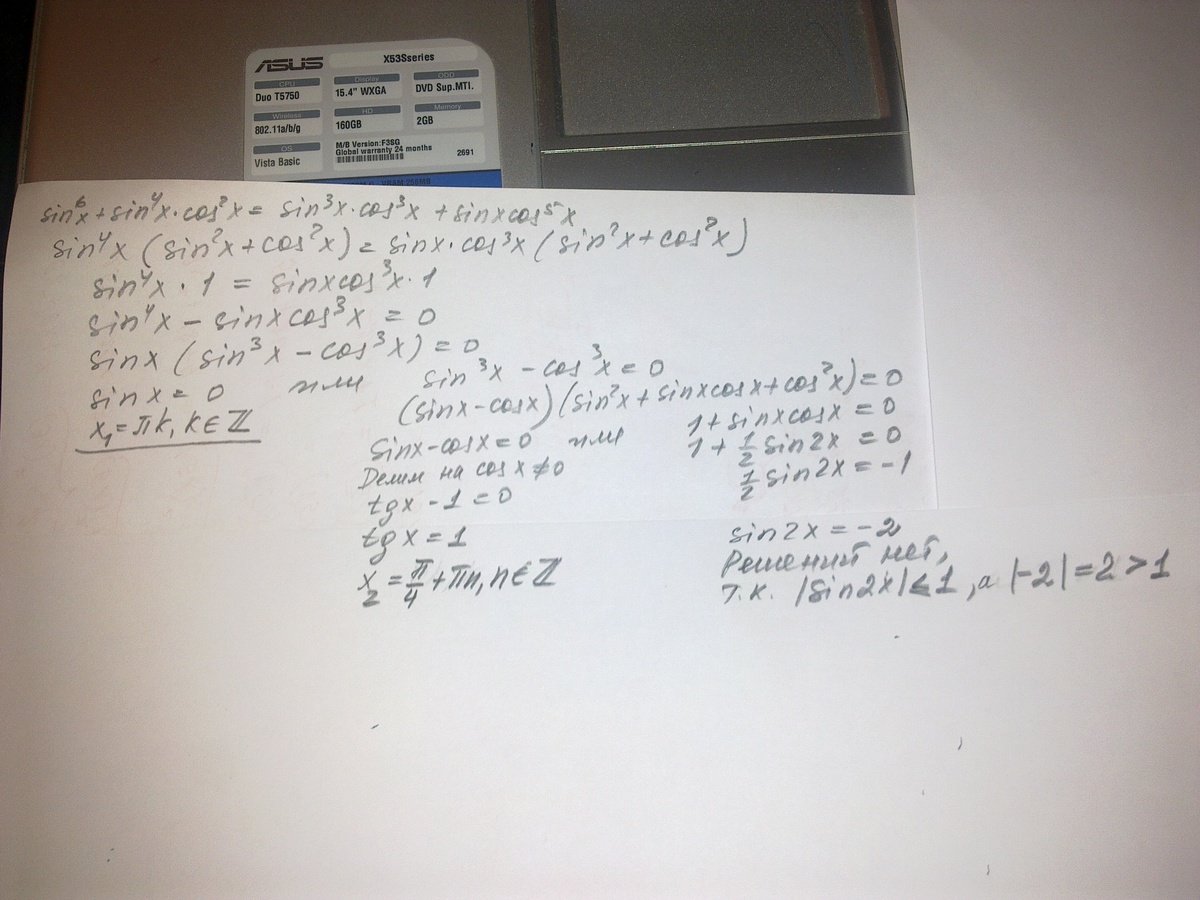 ASUS X53Sseries
CPU Display ODD
Duo T5750 15.4" WXGA DVD Sup.MTI.
Wireless HD Memory
802.11a/b/g 160GB 2GB
OS M/B Version:F3SG
Global warranty 24 months
Vista Basic 2691
sin⁶x + sin⁴x·cos²x = sin³x·cos³x + sinxcos⁵x
sin⁴x (sin²x + cos²x) = sinx·cos³x (sin²x + cos²x)
sin⁴x · 1 = sinxcos³x · 1
sin⁴x − sinxcos³x = 0
sinx (sin³x − cos³x) = 0
sinx = 0 или sin³x − cos³x = 0
x₁ = πk, k ∈ ℤ (sinx − cosx)(sin²x + sinxcosx + cos²x) = 0
sinx − cosx = 0 или 1 + sinxcosx = 0
Делим на cosx ≠ 0 1 + 1/2 sin2x = 0
tgx − 1 = 0 1/2 sin2x = −1
tgx = 1 sin2x = −2
x₂ = π/4 + πn, n ∈ ℤ Решений нет,
т.к. |sin2x| ≤ 1, а |−2| = 2 > 1